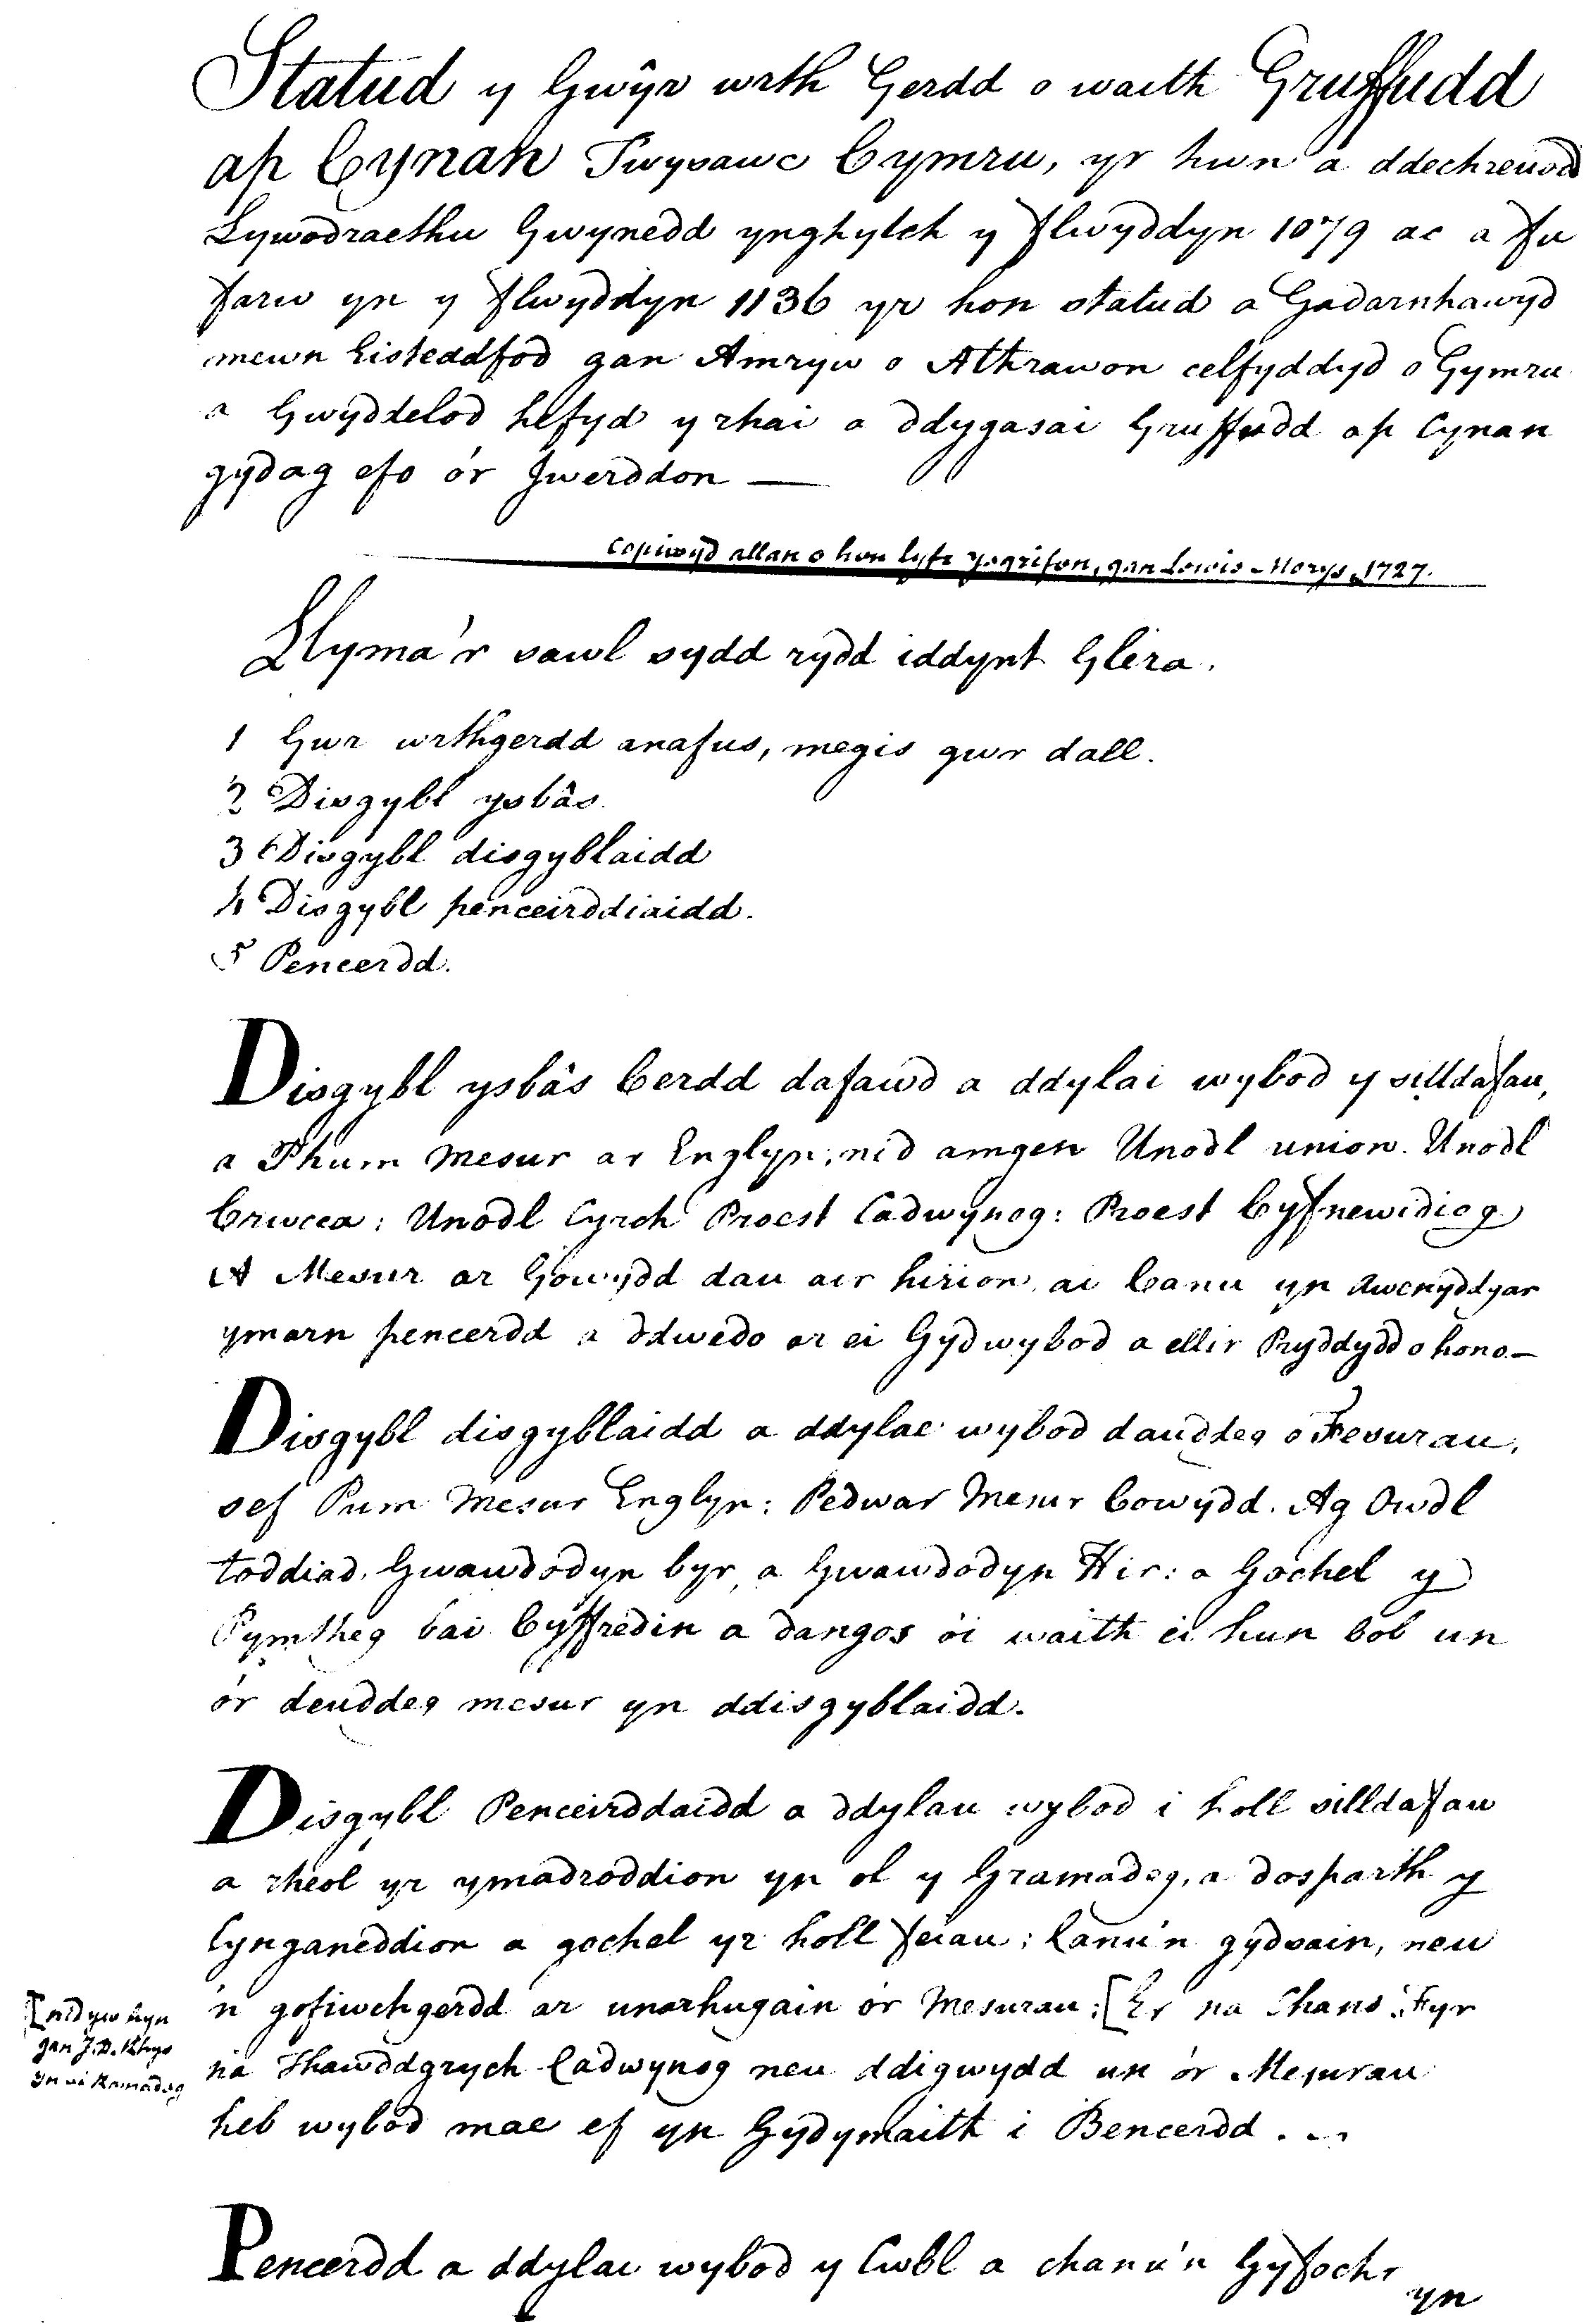 Statud y Gwŷr wrth Gerdd o waith Gruffudd
ap Cynan Twysawc Cymru, yr hwn a ddechreuodd
Lywodraethu Gwynedd ynghylch y flwyddyn 1079 ac a fu
farw yn y flwyddyn 1136 yr hon statud a Gadarnhawyd
mewn Eisteddfod gan Amryw o Athrawon celfyddyd o Gymru
a Gwyddelod hefyd y rhai a ddygasai Gruffudd ap Cynan
gydag efo o'r Jwerddon —
Copiwyd allan o hen lyfr ysgrifen, gan Lewis Morys, 1727.
Llyma'r sawl sydd rydd iddynt Glera.
1 Gwr wrthgerdd anafus, megis gwr dall.
2 Disgybl ysbâs.
3 Disgybl disgyblaidd
4 Disgybl penceirddiaidd.
5 Pencerdd.
Disgybl ysbâs Cerdd dafawd a ddylai wybod y silldafau,
a Phum Mesur ar Englyn, nid amgen Unodl union. Unodl
Crwcca: Unodl Cyrch Proest Cadwynog: Proest Cyfnewidiog
A Mesur ar Gowydd dau air hirion, ai Canu yn Awenyddgar
ymarn pencerdd a ddwedo ar ei Gydwybod a ellir Pryddydd o hono.—
Disgybl disgyblaidd a ddylae wybod dauddeg o Fesurau,
sef Pum Mesur Englyn: Pedwar Mesur Cowydd. Ag Owdl
toddiad, Gwawdodyn byr, a Gwawdodyn Hir: a Gochel y
Pymtheg bai Cyffredin a dangos o'i waith ei hun bob un
o'r deuddeg mesur yn ddisgyblaidd.
Disgybl Penceirddaidd a ddylau wybod i holl silldafau
a rheol yr ymadroddion yn ol y Gramadeg, a dosparth y
Cynganeddion a gochel yr holl feiau: Canu'n gydsain, neu
'n gofiwchgerdd ar unarhugain o'r Mesurau: [Er na Chano Fyr
na Thawddgyrch Cadwynog neu ddigwydd un o'r Mesurau
heb wybod mae ef yn Gydymaith i Bencerdd . ~
[nid yw hyn
gan J. D. Rhys
yn ei Ramadeg
Pencerdd a ddylae wybod y Cwbl a chanu'n Gyfochr
yn